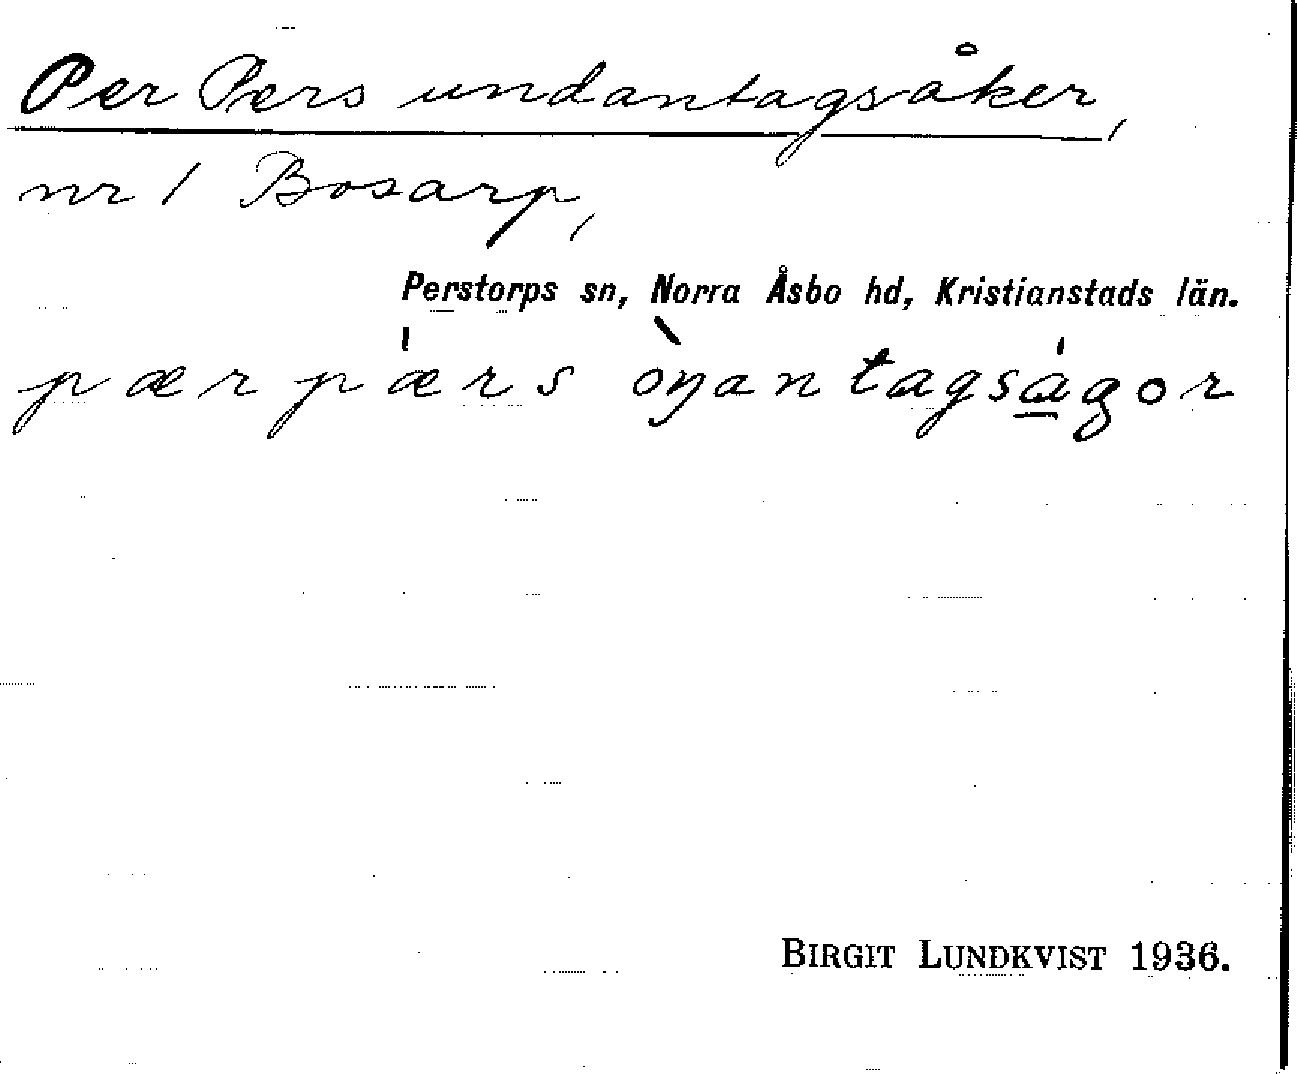 Per Pers undantagsåker,
nr 1 Bosarp,
Perstorps sn, Norra Åsbo hd, Kristianstads län.
pær pǽrs òŋantagságor
BIRGIT LUNDKVIST 1936.